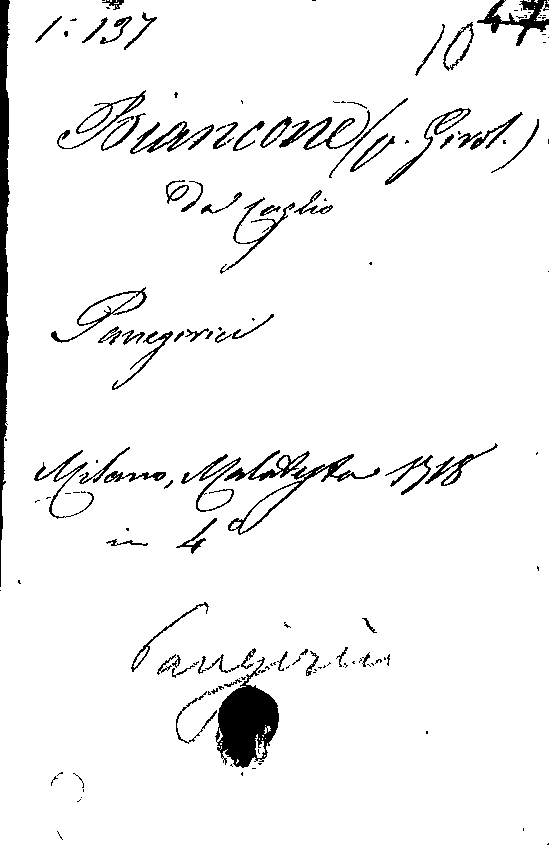 1:137
10 47
Biancone (p. Girol.)
da Cuglio
Panegirici
Milano, Malatesta 1718
in 4º
Panegirici